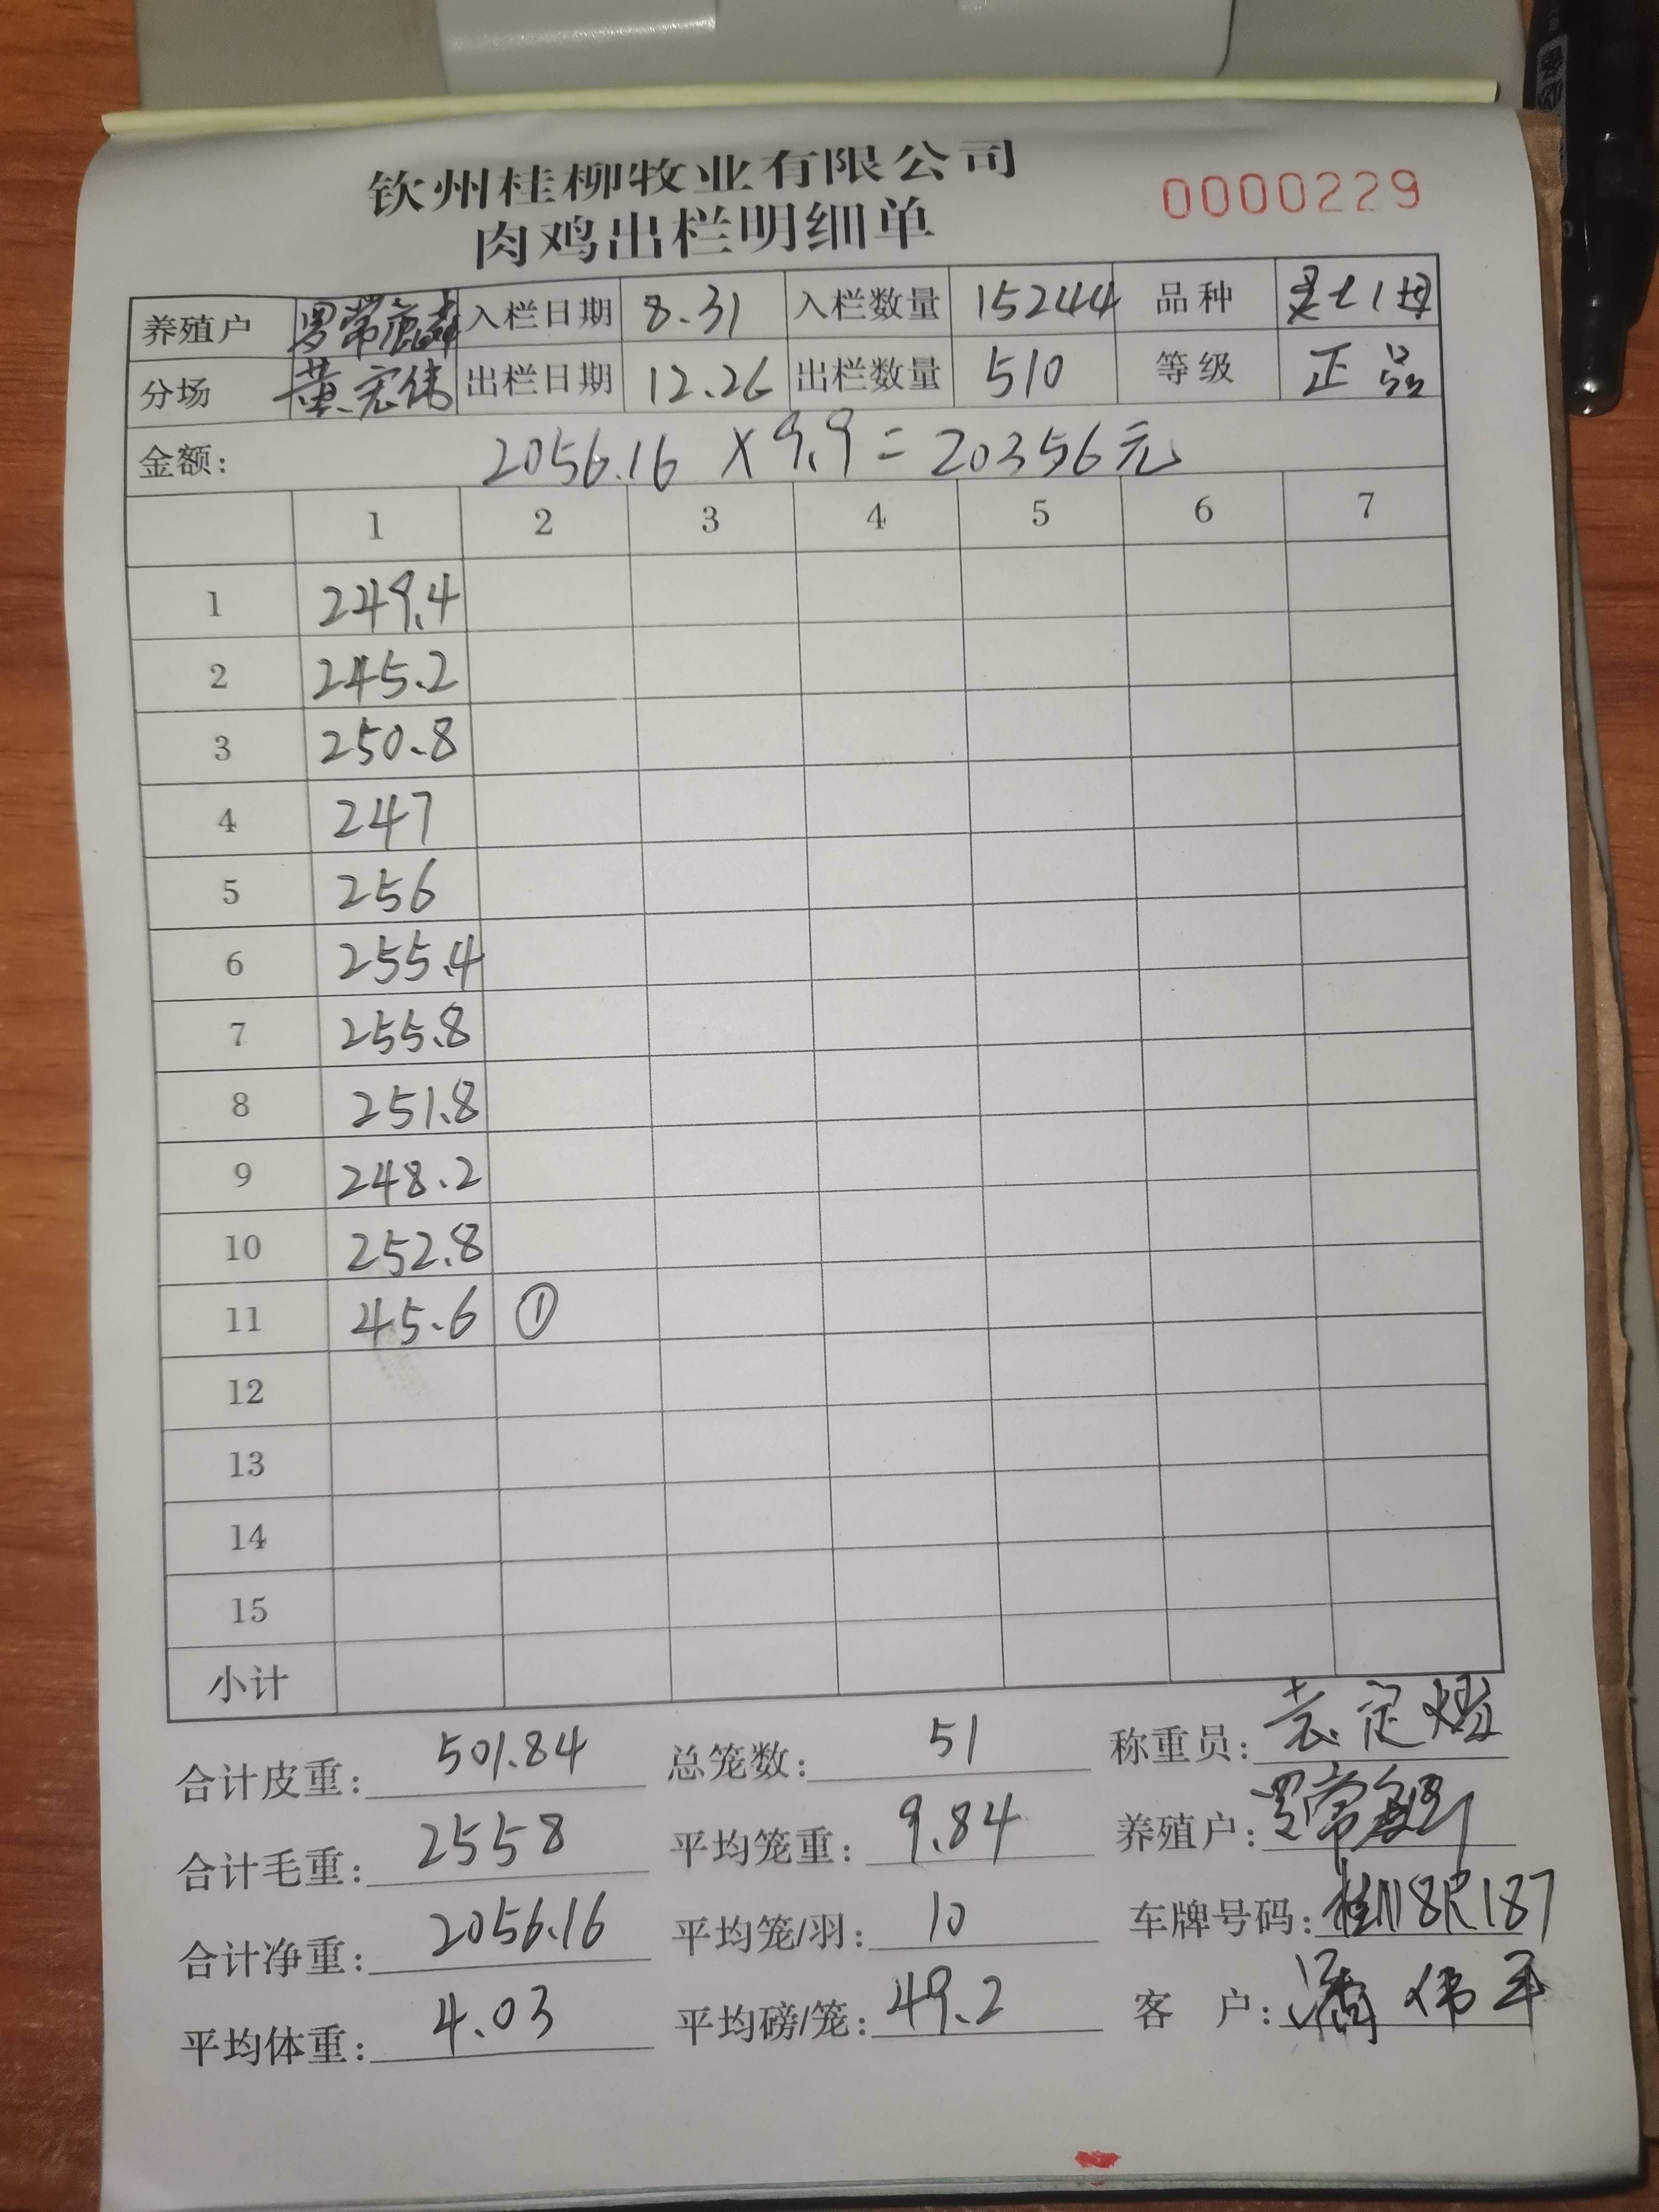 钦州桂柳牧业有限公司
肉鸡出栏明细单 0000229
养殖户 罗常 入栏日期 8.31 入栏数量 15244 品种
分场 黄宏伟 出栏日期 12.26 出栏数量 510 等级 正品
金额: 2056.16 ×9.9=20356元
1 2 3 4 5 6 7
1 249.4
2 245.2
3 250.8
4 247
5 256
6 255.4
7 255.8
8 251.8
9 248.2
10 252.8
11 45.6 ①
12
13
14
15
小计
合计皮重: 501.84 总笼数: 51 称重员: 袁定
合计毛重: 2558 平均笼重: 9.84 养殖户: 罗常
合计净重: 2056.16 平均笼/羽: 10 车牌号码: 桂N8R187
平均体重: 4.03 平均磅/笼: 49.2 客 户: 潘伟平